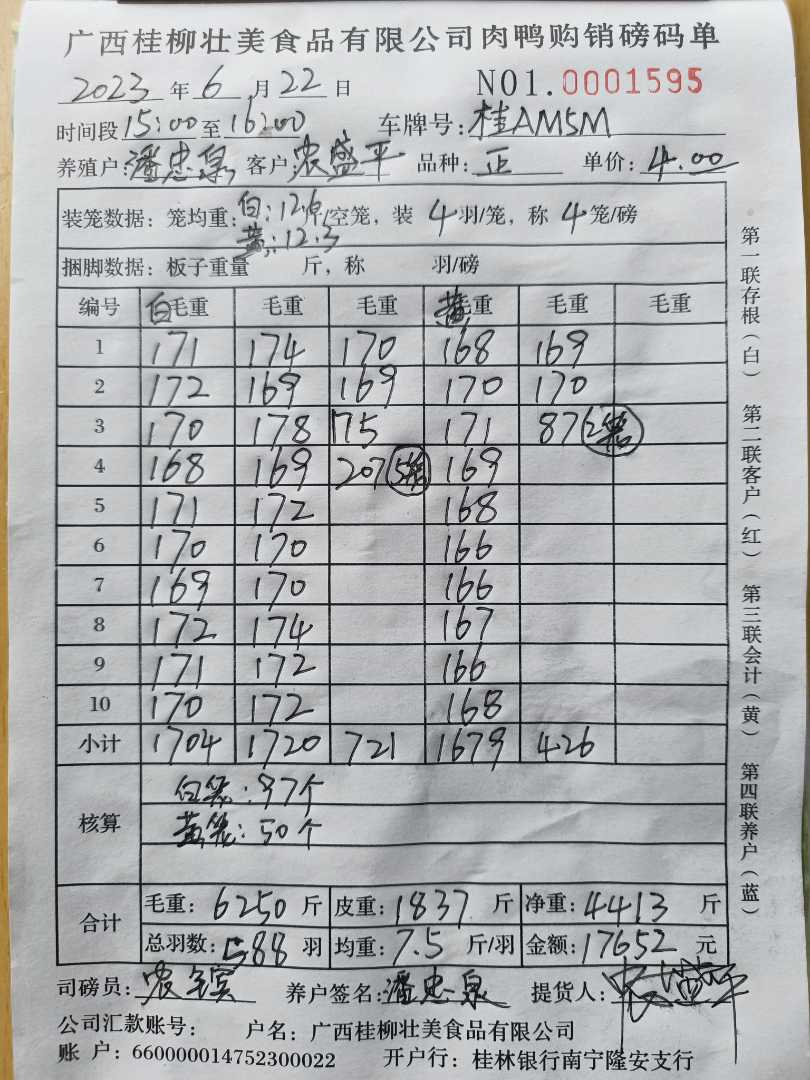 广西桂柳壮美食品有限公司肉鸭购销磅码单
2023 年 6 月 22 日 NO1.0001595
时间段 15:00 至 16:00 车牌号: 桂AM5M
养殖户: 潘忠泉 客户: 农盛平 品种: 正 单价: 4.00
装笼数据: 笼均重: 白:12.6 斤/空笼, 装 4 羽/笼, 称 4 笼/磅
黄:12.3
捆脚数据: 板子重量 斤, 称 羽/磅
编号 白毛重 毛重 毛重 黄毛重 毛重 毛重
1 171 174 170 168 169
2 172 169 169 170 170
3 170 178 175 171 87 2笼
4 168 169 207 5笼 169
5 171 172 168
6 170 170 166
7 169 170 166
8 172 174 167
9 171 172 166
10 170 172 168
小计 1704 1720 721 1679 426
核算 白笼: 97个
黄笼: 50个
合计 毛重: 6250 斤 皮重: 1837 斤 净重: 4413 斤
总羽数: 588 羽 均重: 7.5 斤/羽 金额: 17652 元
司磅员: 农 宾 养户签名: 潘忠泉 提货人: 农盛平
公司汇款账号: 户名: 广西桂柳壮美食品有限公司
账 户: 660000014752300022 开户行: 桂林银行南宁隆安支行
第一联存根(白) 第二联客户(红) 第三联会计(黄) 第四联养户(蓝)